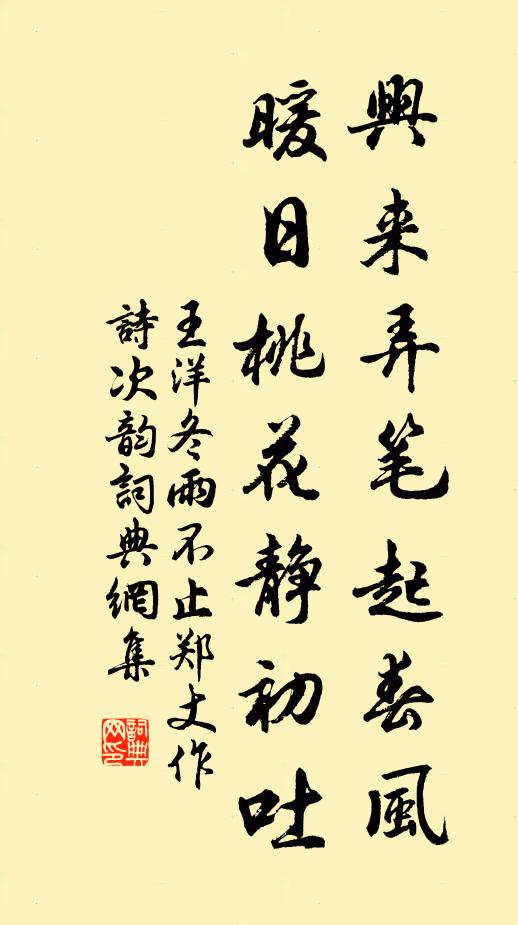 興来弄笔起春風
暖日桃花静初吐
王洋冬雨不止郑丈作
詩次韵詞典網集
詞典網印